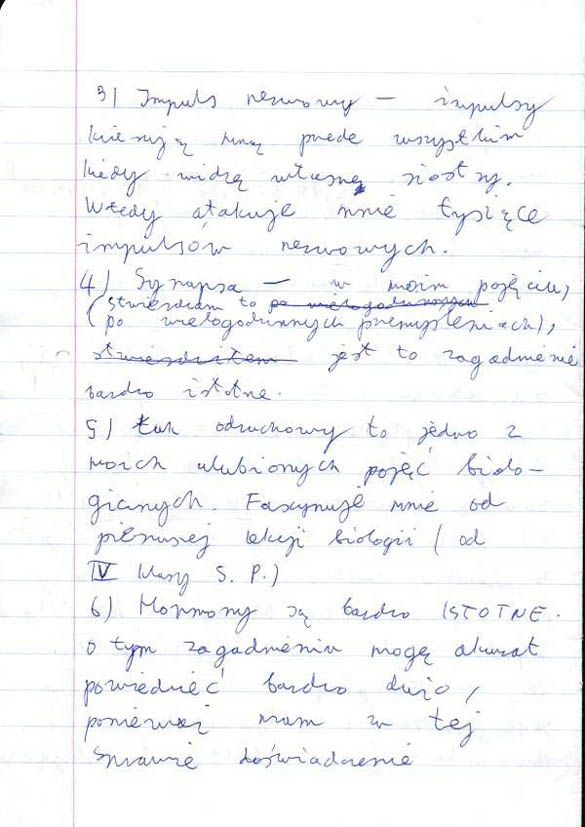 3) Impuls nerwowy – impulsy
kierują mną przede wszystkim
kiedy widzę własną siostrę.
Wtedy atakuje mnie tysiące
impulsów nerwowych.
4) Synapsa – w moim pojęciu,
(stwierdzam to po wielogodzinnych
po wielogodzinnych przemyśleniach),
stwierdziłem jest to zagadnienie
bardzo istotne.
5) Łuk odruchowy to jedno z
moich ulubionych pojęć biolo-
gicznych. Fascynuje mnie od
pierwszej lekcji biologii (od
IV klasy S. P.)
6) Hormony są bardzo ISTOTNE.
O tym zagadnieniu mogę akurat
powiedzieć bardzo dużo,
ponieważ mam w tej
sprawie doświadczenie